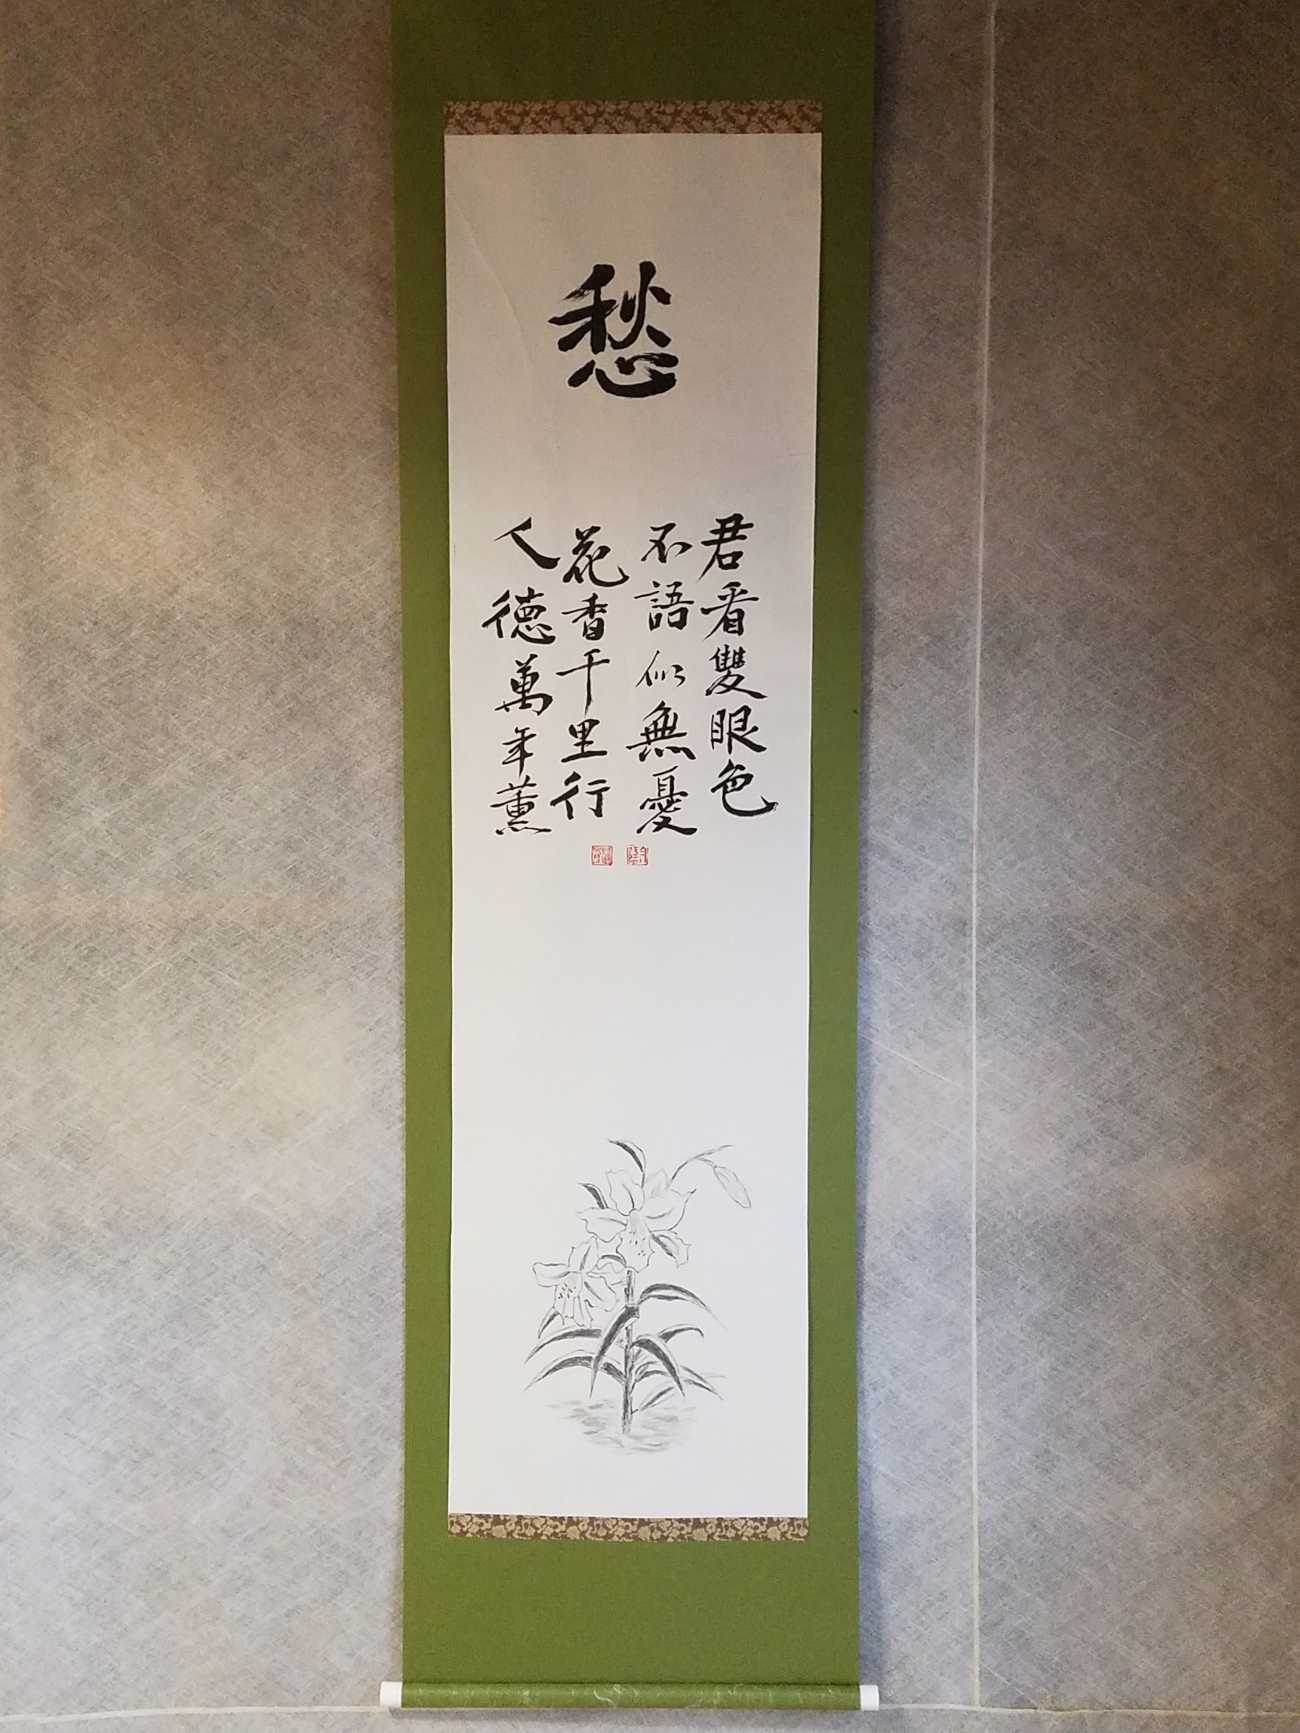 愁
君看雙眼色
不語似無憂
花香千里行
人德萬年薫